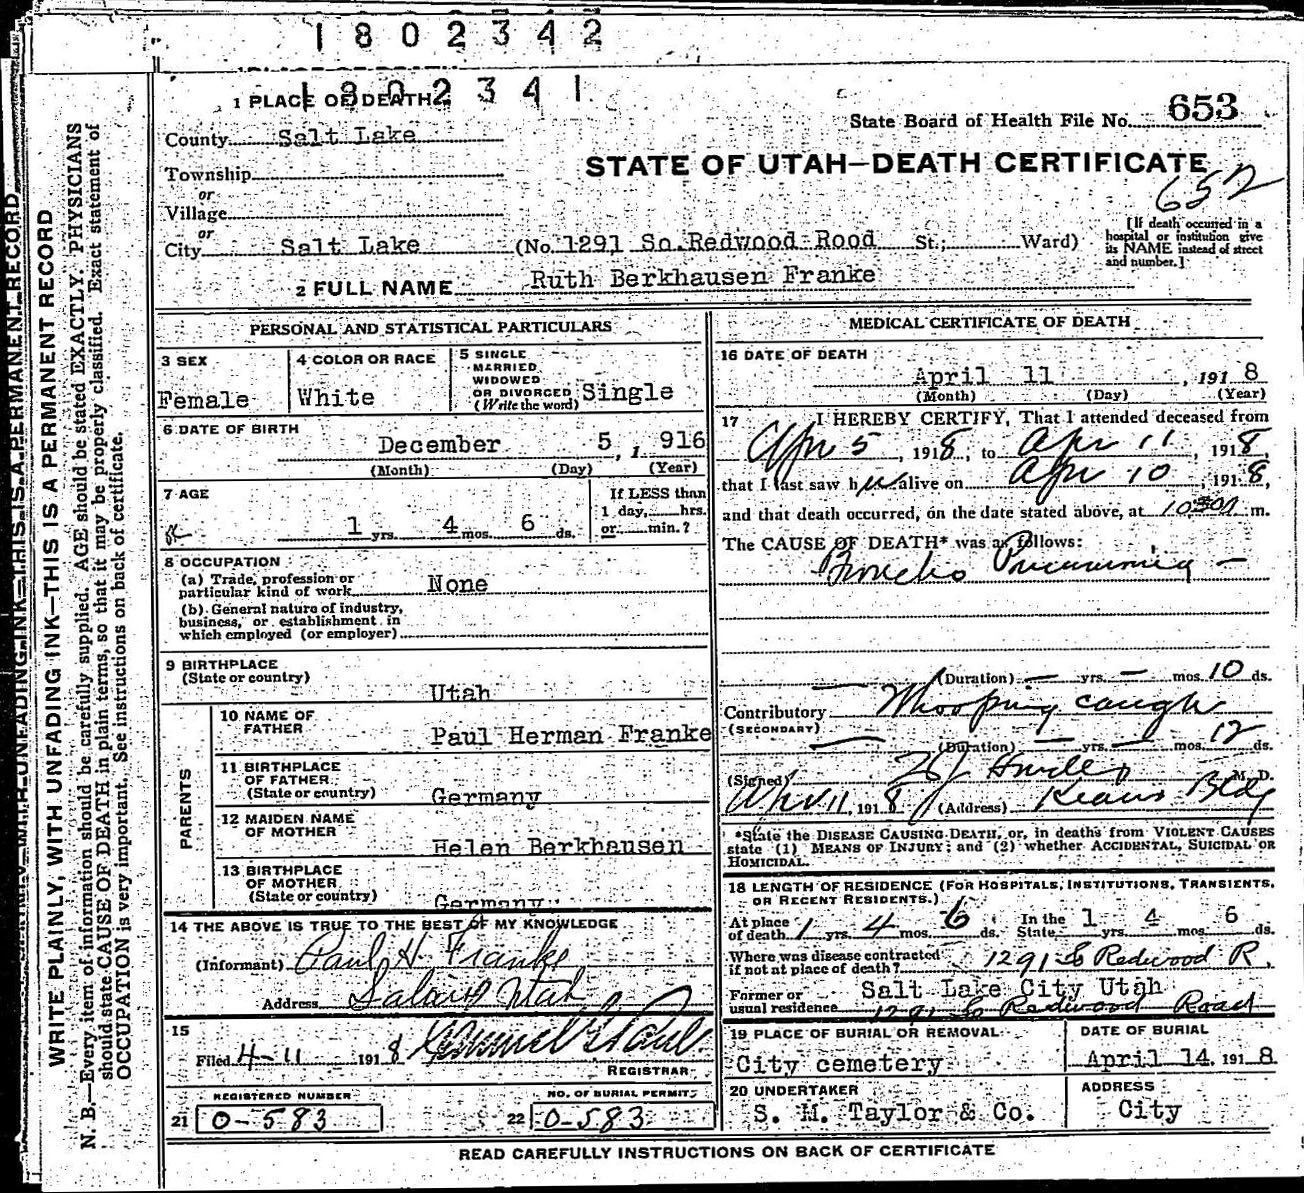 1802342
1802341
1 PLACE OF DEATH
State Board of Health File No. 653
County Salt Lake
STATE OF UTAH—DEATH CERTIFICATE
652
Township
or
Village
or
City Salt Lake (No. 1291 So. Redwood Rood St.; Ward)
[If death occurred in a hospital or institution give its NAME instead of street and number.]
2 FULL NAME Ruth Berkhausen Franke
PERSONAL AND STATISTICAL PARTICULARS
3 SEX
Female
4 COLOR OR RACE
White
5 SINGLE
MARRIED
WIDOWED
OR DIVORCED Single
(Write the word)
6 DATE OF BIRTH
December 5, 1 916
(Month) (Day) (Year)
7 AGE
1 yrs. 4 mos. 6 ds.
If LESS than
1 day, hrs.
or min.?
8 OCCUPATION
(a) Trade, profession or
particular kind of work None
(b) General nature of industry,
business, or establishment in
which employed (or employer)
9 BIRTHPLACE
(State or country)
Utah
PARENTS
10 NAME OF
FATHER
Paul Herman Franke
11 BIRTHPLACE
OF FATHER
(State or country) Germany
12 MAIDEN NAME
OF MOTHER
Helen Berkhausen
13 BIRTHPLACE
OF MOTHER
(State or country) Germany
14 THE ABOVE IS TRUE TO THE BEST OF MY KNOWLEDGE
(Informant) Paul H. Franke
Address Utah
15
Filed 4-11 1918
REGISTRAR
REGISTERED NUMBER
21 0-583
NO. OF BURIAL PERMIT
22 0-583
MEDICAL CERTIFICATE OF DEATH
16 DATE OF DEATH
April 11, 1918
(Month) (Day) (Year)
17 I HEREBY CERTIFY, That I attended deceased from
Apr 5, 1918, to Apr 11, 1918,
that I last saw h er alive on Apr 10, 1918,
and that death occurred, on the date stated above, at m.
The CAUSE OF DEATH* was as follows:
Broncho Pneumonia
(Duration) — yrs. — mos. 10 ds.
Contributory Whooping cough
(SECONDARY)
(Duration) — yrs. — mos. 12 ds.
(Signed) M. D.
Apr 11, 1918 (Address) Kearns Bldg
*State the DISEASE CAUSING DEATH, or, in deaths from VIOLENT CAUSES
state (1) MEANS OF INJURY; and (2) whether ACCIDENTAL, SUICIDAL OR
HOMICIDAL.
18 LENGTH OF RESIDENCE (FOR HOSPITALS, INSTITUTIONS, TRANSIENTS,
OR RECENT RESIDENTS.)
At place
of death 1 yrs. 4 mos. 6 ds. In the State 1 yrs. 4 mos. 6 ds.
Where was disease contracted
if not at place of death? 1291 So Redwood R.
Former or Salt Lake City Utah
usual residence 1291 So Redwood Road
19 PLACE OF BURIAL OR REMOVAL
City cemetery
DATE OF BURIAL
April 14, 1918
20 UNDERTAKER
S. M. Taylor & Co.
ADDRESS
City
READ CAREFULLY INSTRUCTIONS ON BACK OF CERTIFICATE
WRITE PLAINLY, WITH UNFADING INK—THIS IS A PERMANENT RECORD
N. B.—Every item of information should be carefully supplied. AGE should be stated EXACTLY. PHYSICIANS
should state CAUSE OF DEATH in plain terms, so that it may be properly classified. Exact statement of
OCCUPATION is very important. See instructions on back of certificate.